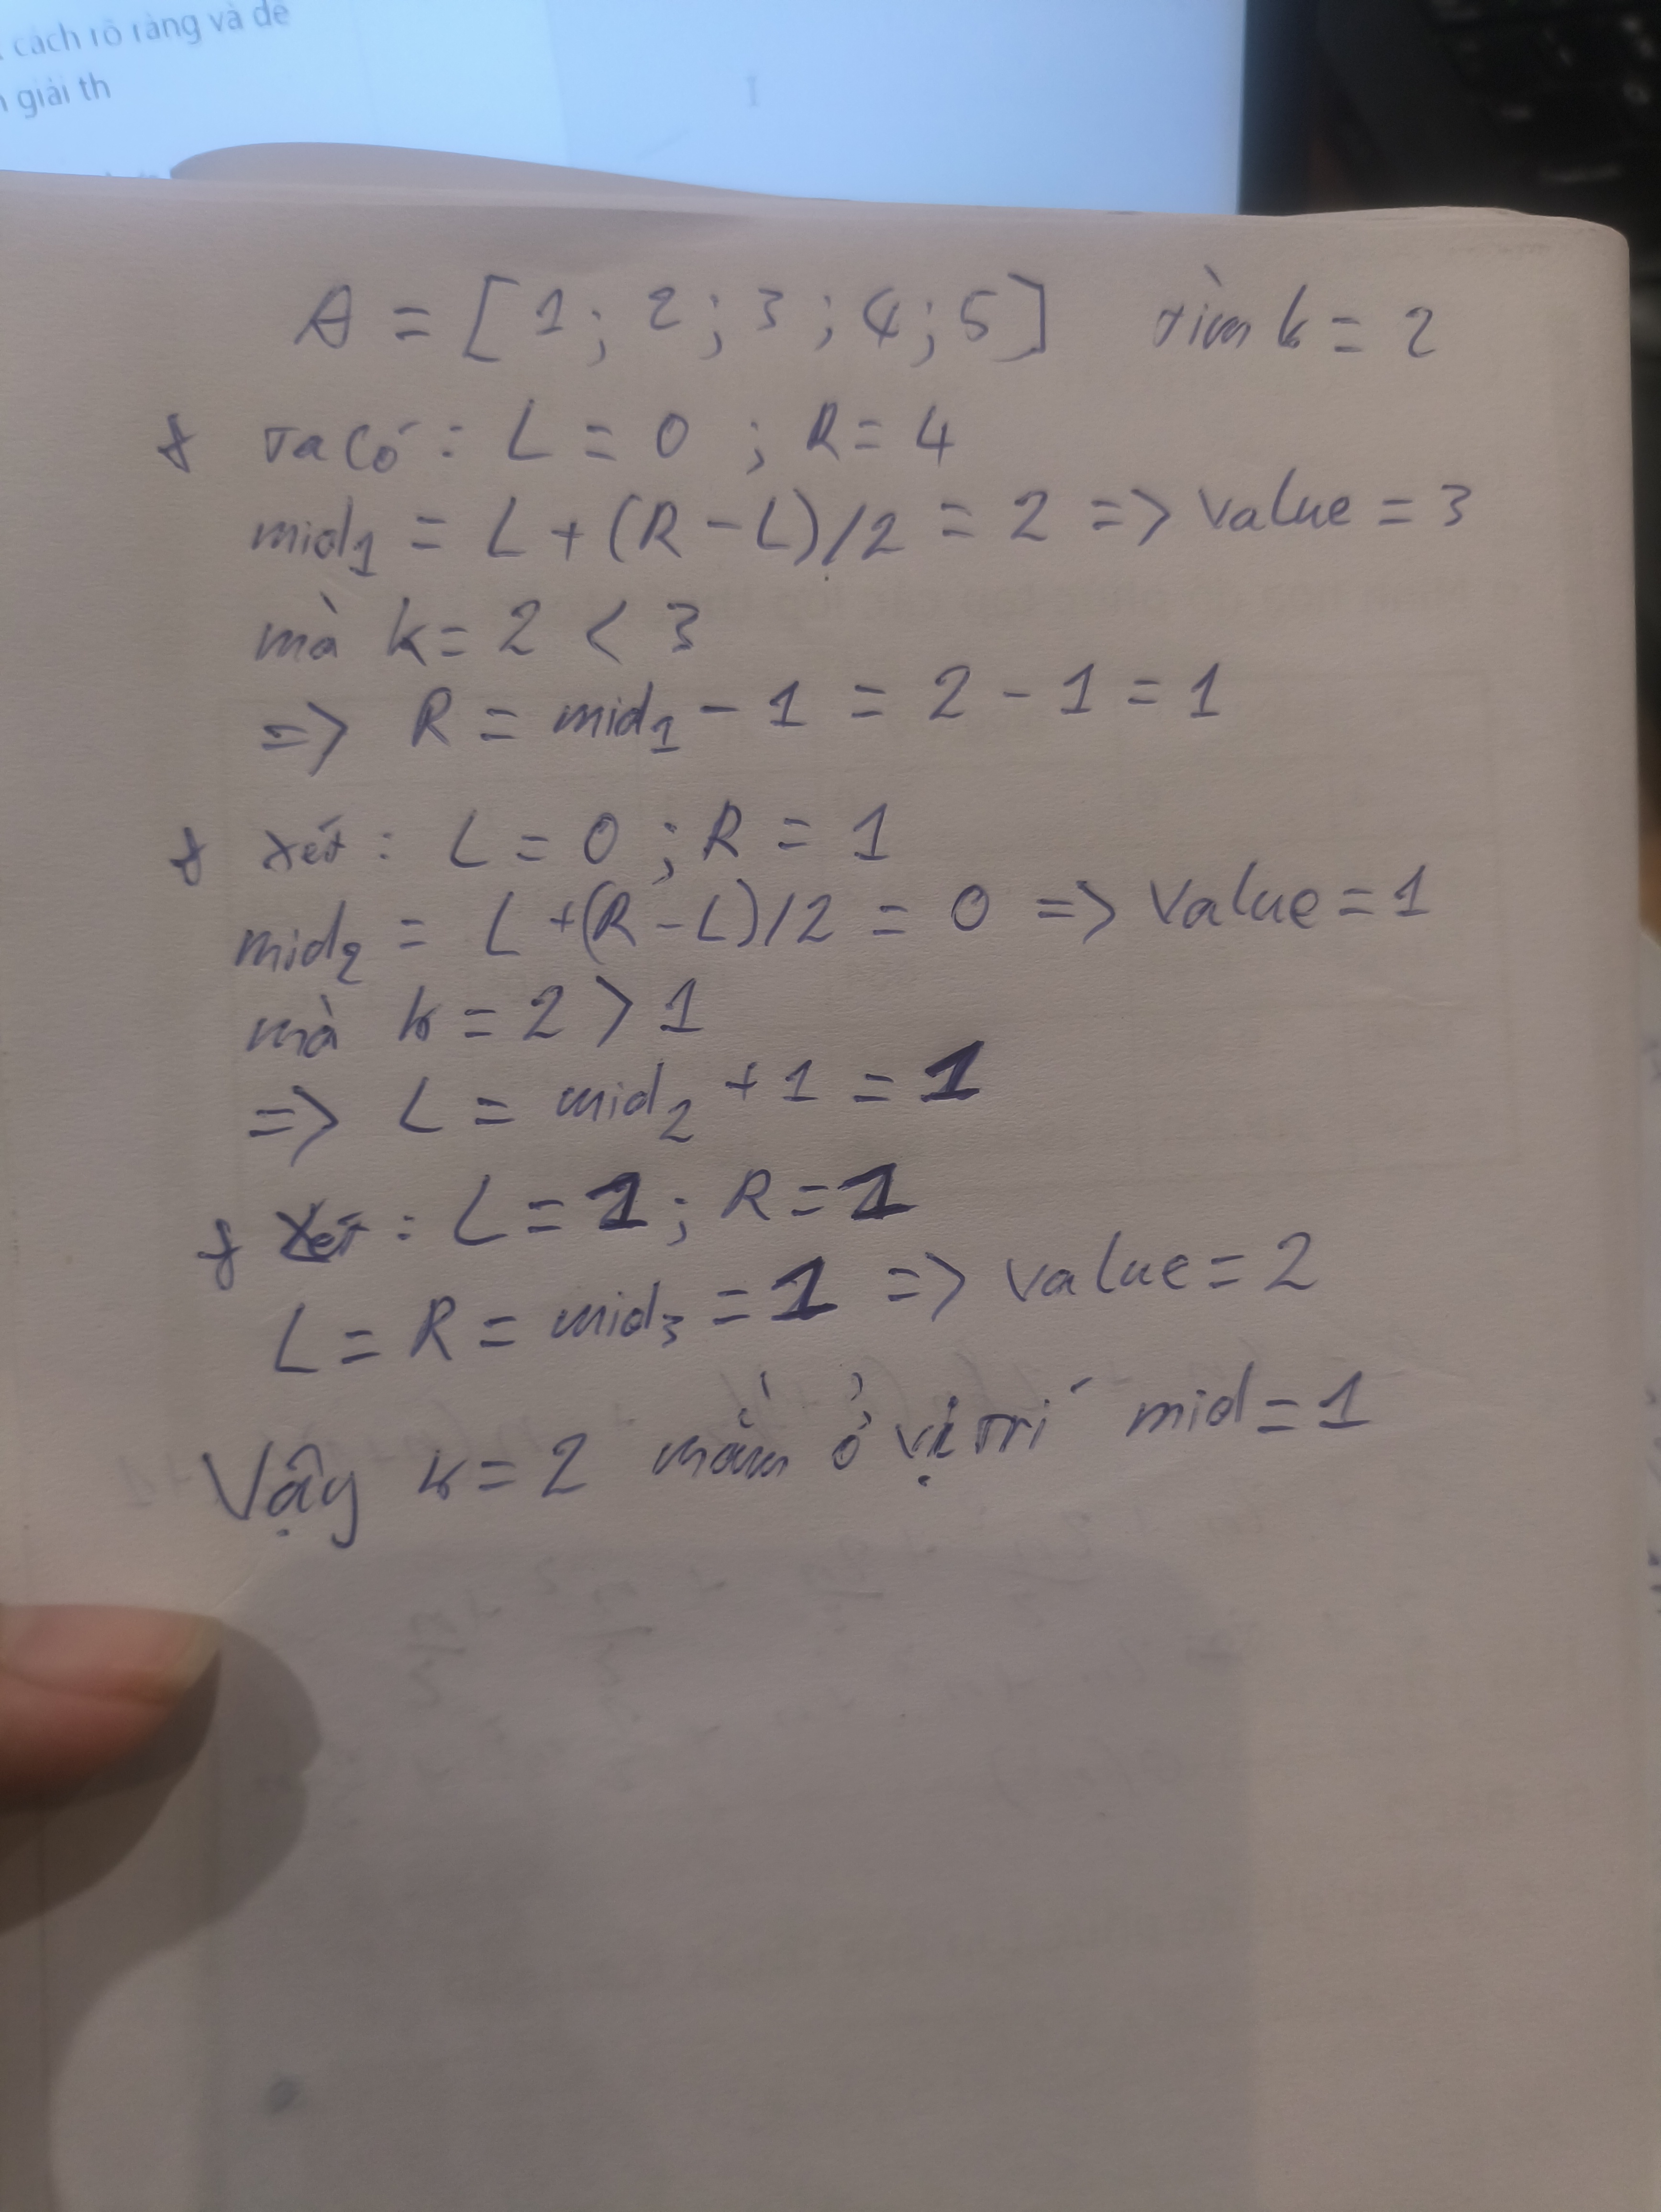 cách rõ ràng và dễ
giải th
A = [1; 2; 3; 4; 5] tìm k = 2
+ Ta có: L = 0 ; R = 4
mid1 = L + (R - L)/2 = 2 => value = 3
mà k = 2 < 3
=> R = mid1 - 1 = 2 - 1 = 1
+ Xét: L = 0 ; R = 1
mid2 = L + (R - L)/2 = 0 => value = 1
mà k = 2 > 1
=> L = mid2 + 1 = 1
+ Xét: L = 1; R = 1
L = R = mid3 = 1 => value = 2
Vậy k = 2 nằm ở vị trí mid = 1